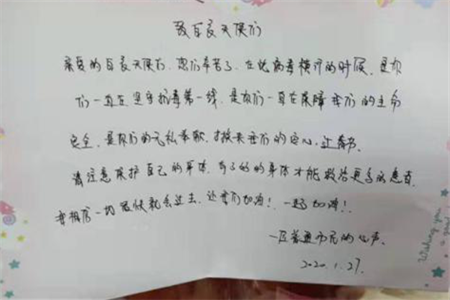 致白衣天使们
亲爱的白衣天使们，您们辛苦了，在此病毒横行的时候，是你
们一直在坚守抗毒第一线，是你们一直在保障我们的生命
安全，是你们的无私奉献，才换来我们的安心，
请注意保护自己的身体，有了好的身体才能救治更多的患者，
要相信一切很快就会过去，让我们加油！一起加油！
一位普通市民的心声。
2020.1.27.
Wishing you